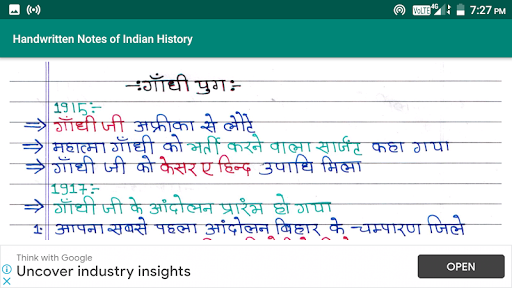 VoLTE 4G 7:27 PM
Handwritten Notes of Indian History
-:गाँधी युग:-
1915:-
⇒ गाँधी जी अफ्रीका से लौटे
⇒ महात्मा गाँधी को भर्ती करने वाला सार्जेंट कहा गया
⇒ गाँधी जी को केसर ए हिन्द उपाधि मिला
1917:-
⇒ गाँधी जी के आंदोलन प्रारंभ हो गया
1. आपना सबसे पहला आंदोलन बिहार के चम्पारण जिले
Think with Google
Uncover industry insights
OPEN